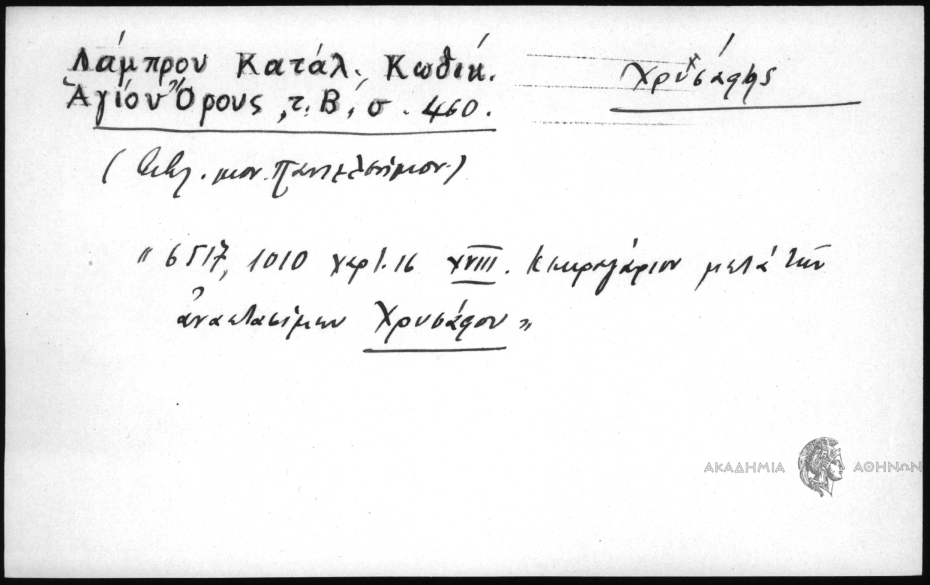 Λάμπρου Κατάλ. Κωδίκ.
Ἁγίου Ὄρους, τ. Β, σ. 460.
Χρυσάφης
(Βιβλ. μον. Παντελεήμον.)
"6517, 1010 χαρτ. 16 XVIII. Κεκραγάριον μετὰ τῶν
ἀναστασίμων Χρυσάφου"
ΑΚΑΔΗΜΙΑ ΑΘΗΝΩΝ